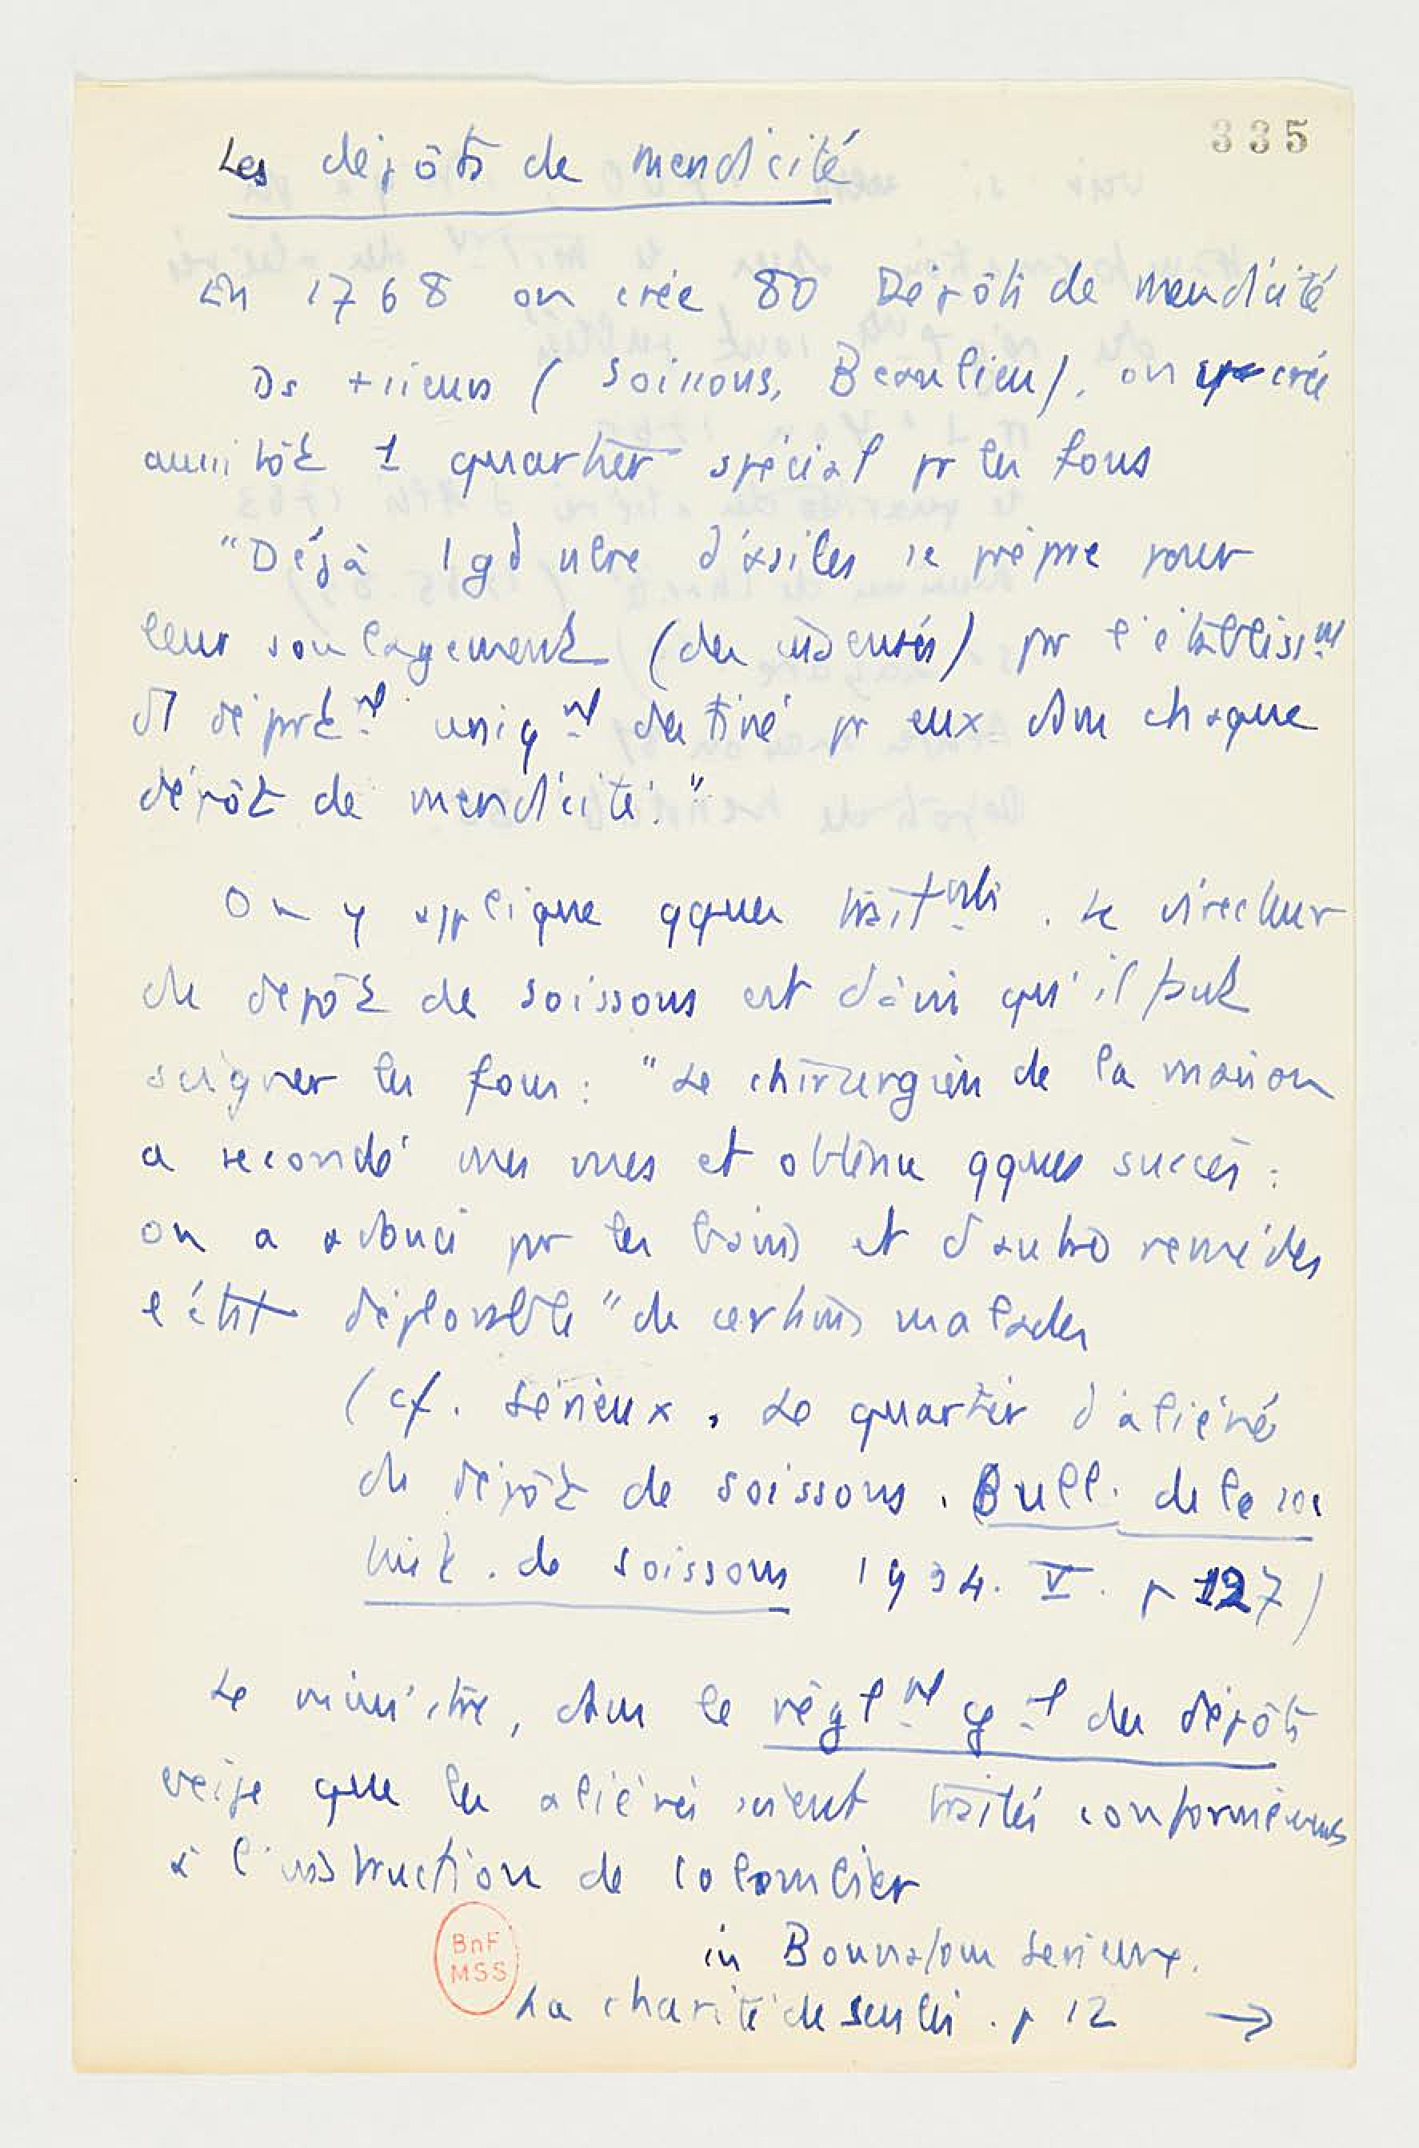 335
Les dépôts de mendicité
En 1768 on crée 80 Dépôts de mendicité
Ds +sieurs (Soissons, Beaulieu), on y crée
aussitôt 1 quartier spécial pr les fous
"Déjà 1 gd nbre d'asiles se prépare pour
leur soulagement (des insensés) par l'établisst
d1 départmt uniqmt destiné pr eux dans chaque
dépôt de mendicité."
On y applique qques traitmts. Le directeur
du dépôt de Soissons est d'avis qu'il faut
soigner les fous : "Le chirurgien de la maison
a secondé mes vues et obtenu qques succès :
on a adouci par les bains et d'autres remèdes
l'état déplorable" de certains malades
(cf. Sérieux. Le quartier d'aliénés
du dépôt de Soissons. Bull. de la soc
hist. de Soissons 1934. V. p 127)
Le ministre, dans le règlmt gal des dépôts
exige que les aliénés soient traités conformément
à l'instruction de Colombier
in Bonnafous Sérieux.
La charité de Senlis. p 12 →
BnF
MSS